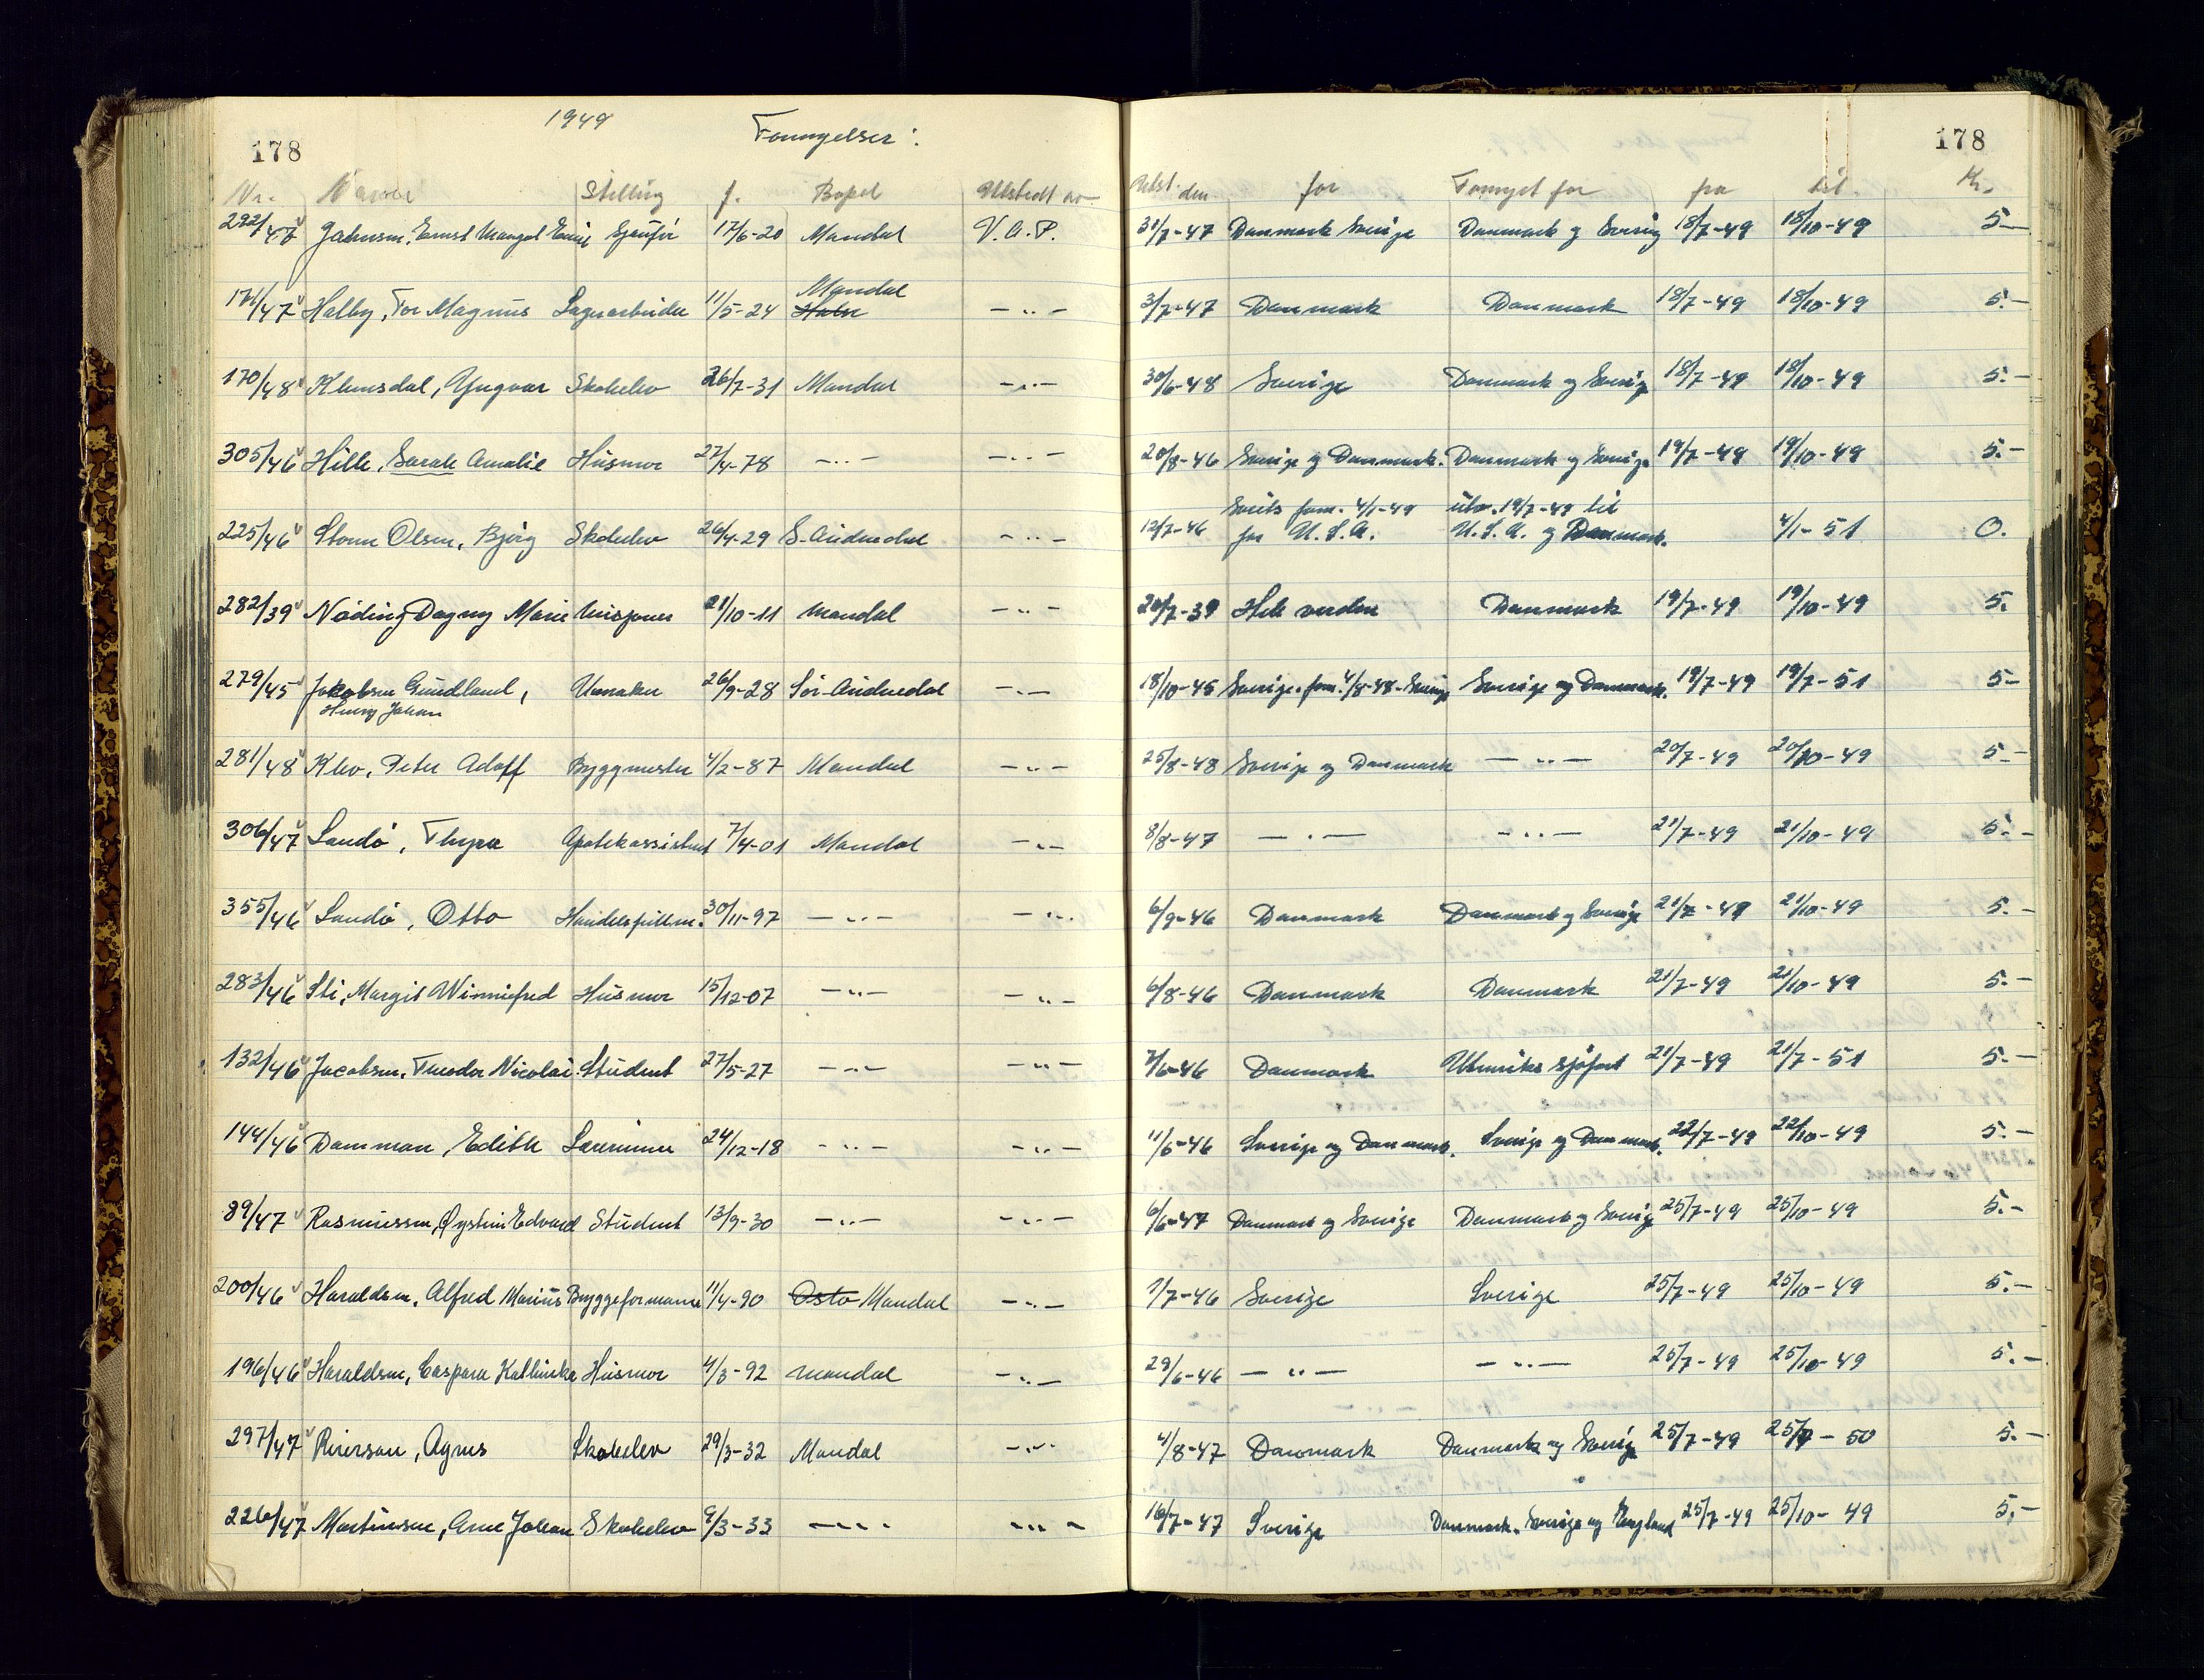 178 1949 Fornyelser: 178
Nr. Navn Stilling f. Bopel Utstedt av Utst. den for Fornyet for fra til Kr.
292/47 Jahnsen, Ernst Sjåfør 17/6-20 Mandal V.A.P. 31/7-47 Danmark Sverige Danmark og Sverig 18/7-49 18/10-49 5.-
171/47 Halby, Tor Magnus Lagerarbeider 11/5-24 Mandal Halse -"- 3/7-47 Danmark Danmark 18/7-49 18/10-49 5.-
170/48 Klunsdal, Yngvar Skoleelev 26/7-31 Mandal -"- 30/6-48 Sverige Danmark og Sverig 18/7-49 18/10-49 5.-
305/46 Hille, Sarah Amalie Husmor 27/4-78 -"- -"- 20/8-46 Sverige og Danmark. Danmark og Sverige 19/7-49 19/10-49 5.-
225/46 Storm Olsen, Bjørg Skoleelev 26/4-29 S-Audnedal -"- 12/7-46 forn. 4/1-49 for U.S.A. utv. 19/7-49 til U.S.A. og Danmark. 4/1-51 0.
282/39 Nøding Dagny Marie 21/10-11 Mandal -"- 20/7-39 Hele verden Danmark 19/7-49 19/10-49 5.
279/45 Jakobsen Gundland, 26/9-28 Sør-Audnedal -"- 18/10-45 Sverige. forn. 4/8-48-Sverige Sverige og Danmark. 19/7-49 19/7-51 5-
Henry Johan
281/48 Klev, Peter Adolf Byggmester 4/2-87 Mandal -"- 25/8-48 Sverige og Danmark -"- 20/7-49 20/10-49 5-
306/47 Sandø, Thyra Apotekassistent 7/4-01 Mandal -"- 8/8-47 -"- -"- 21/7-49 21/10-49 5.-
355/46 Sandø, Otto Handelsfullm. 30/11-97 -"- -"- 6/9-46 Danmark Danmark og Sverige 21/7-49 21/10-49 5.-
283/46 Sti, Margit Winniefred Husmor 15/12-07 -"- -"- 6/8-46 Danmark Danmark 21/7-49 21/10-49 5.-
132/46 Jacobsen, Teodor Nicolai Student 27/5-27 -"- -"- 7/6-46 Danmark Utenriks sjøfart 21/7-49 21/7-51 5.-
144/46 Damman, Edith Lærerinne 24/12-18 -"- -"- 11/6-46 Sverige og Danmark. Sverige og Danmark. 22/7-49 22/10-49 5.-
89/47 Rasmussen, Øystein Edvard Student 13/9-30 -"- -"- 6/6-47 Danmark og Sverige Danmark og Sverig 25/7-49 25/10-49 5.-
200/46 Haraldsen, Alfred Marius Byggeformann 11/4-90 Oslo Mandal -"- 1/7-46 Sverige Sverige 25/7-49 25/10-49 5.-
196/46 Haraldsen, Caspara Kathinka Husmor 4/3-92 Mandal -"- 29/6-46 -"- -"- 25/7-49 25/10-49 5.-
297/47 Reierson, Agnes Skoleelev 29/3-32 Mandal -"- 4/8-47 Danmark Danmark og Sverig 25/7-49 25/7-50 5.-
226/47 Martinsen, Arne Johan Skoleelev 9/3-33 -"- -"- 16/7-47 Sverige Danmark. Sverige og England 25/7-49 25/10-49 5,-